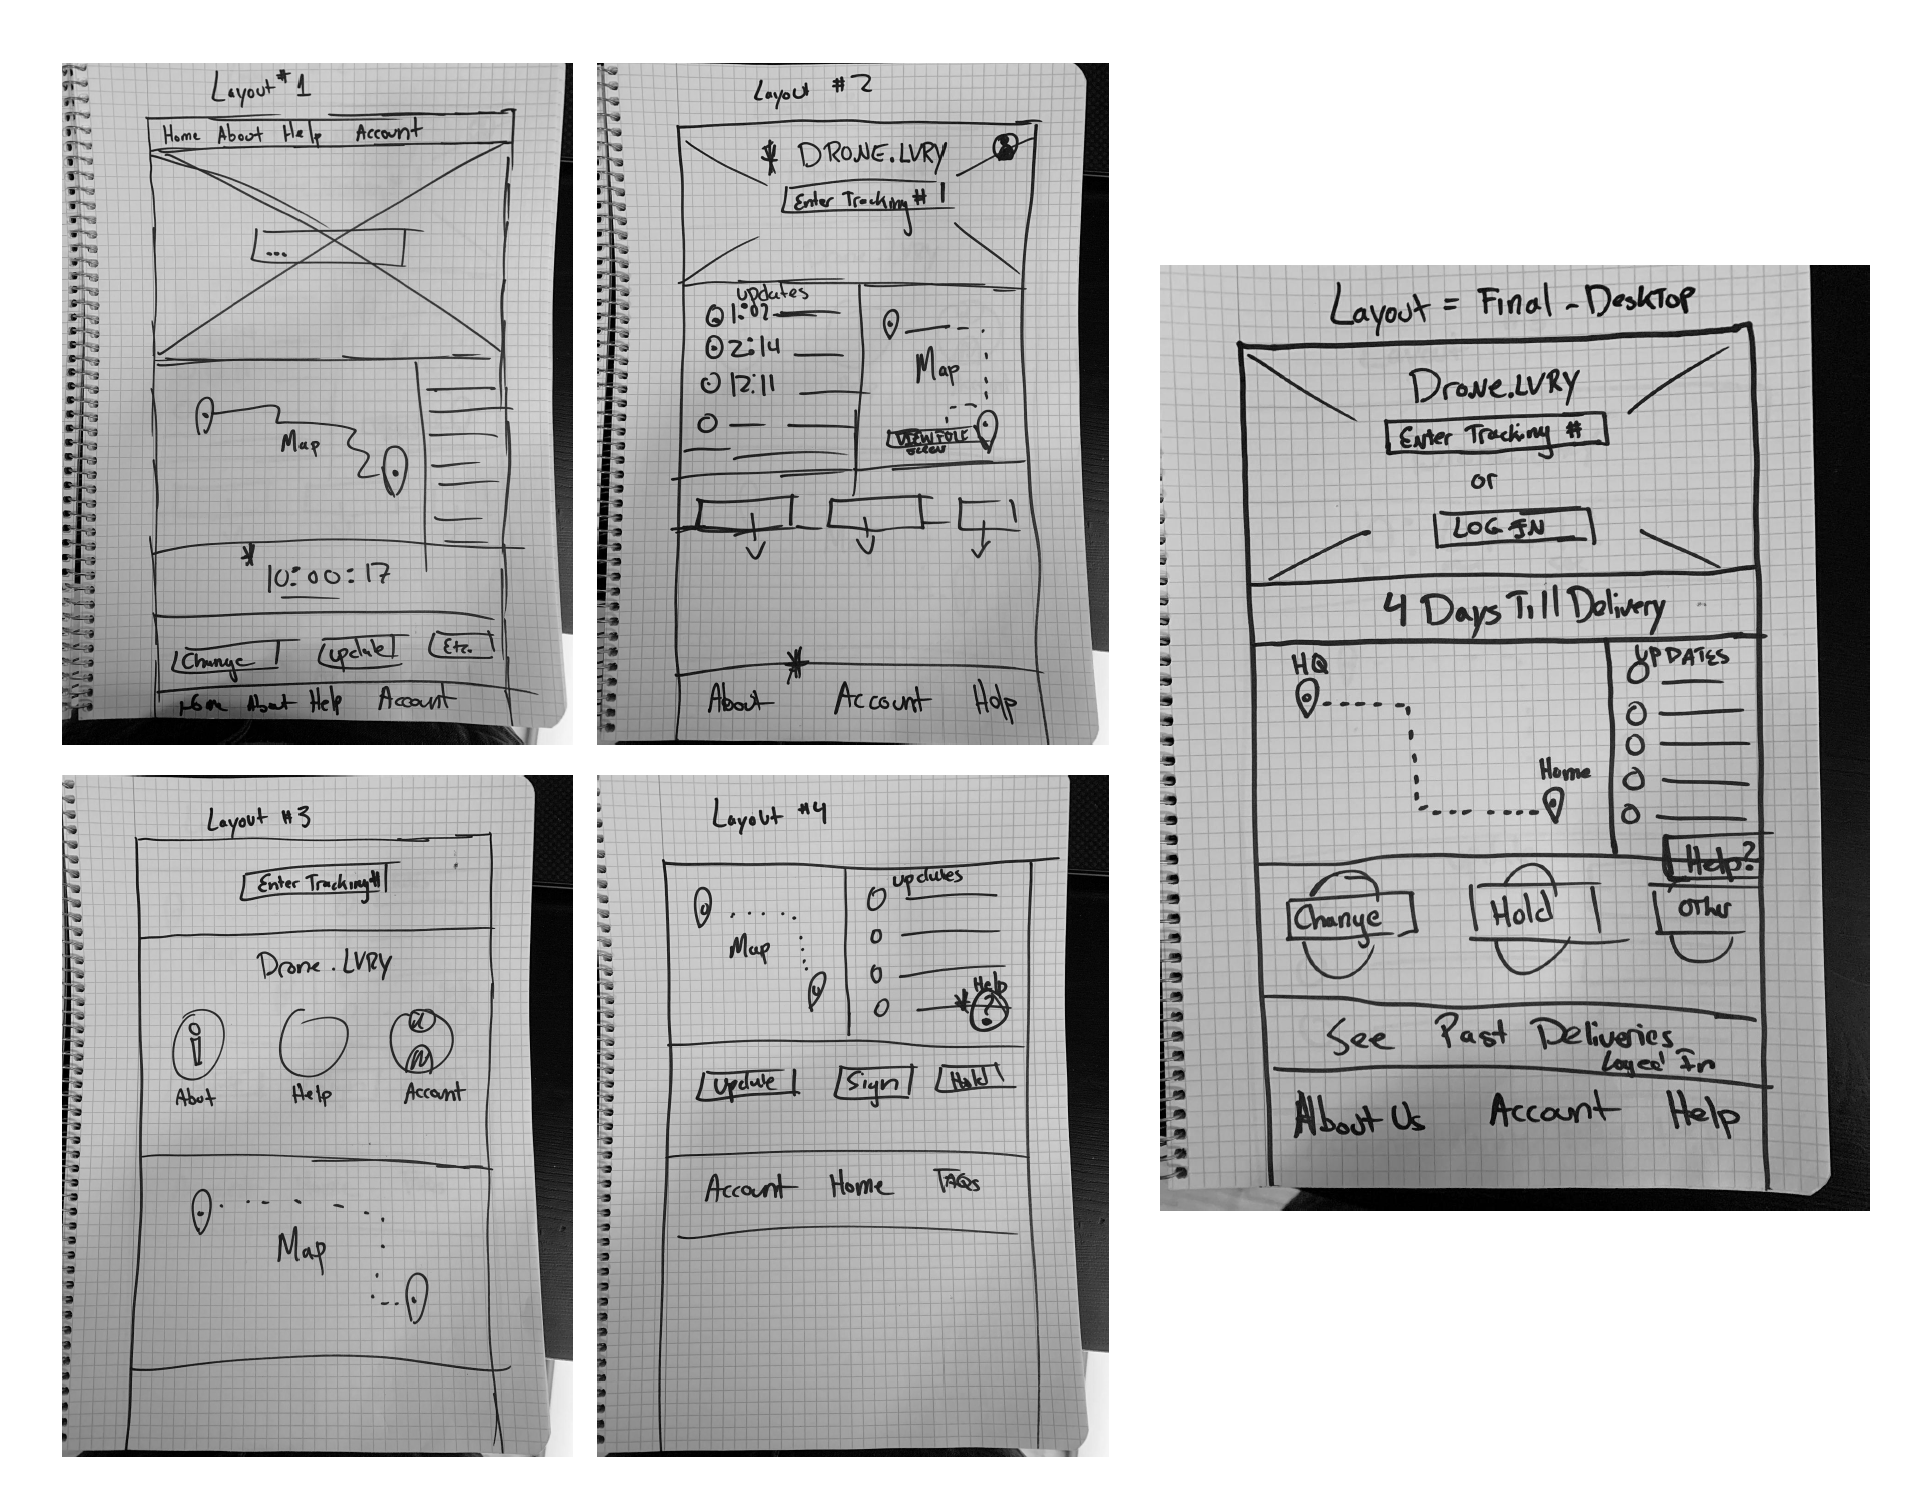 Layout #1
Home About Help Account
...
Map
10:00:17
Change Update Etc.
Home About Help Account
Layout #2
DRONE.LVRY
Enter Tracking #
updates
1:02
2:14
12:11
Map
VIEW FULL
About Account Help
Layout #3
Enter Tracking #
Drone.LVRY
i
About Help Account
Map
Layout #4
updates
Map
Help
?
Update Sign Hold
Account Home FAQs
Layout = Final - Desktop
Drone.LVRY
Enter Tracking #
or
LOG IN
4 Days Till Delivery
HQ
UPDATES
Home
Help?
Change Hold Other
See Past Deliveries
Loged In
About Us Account Help